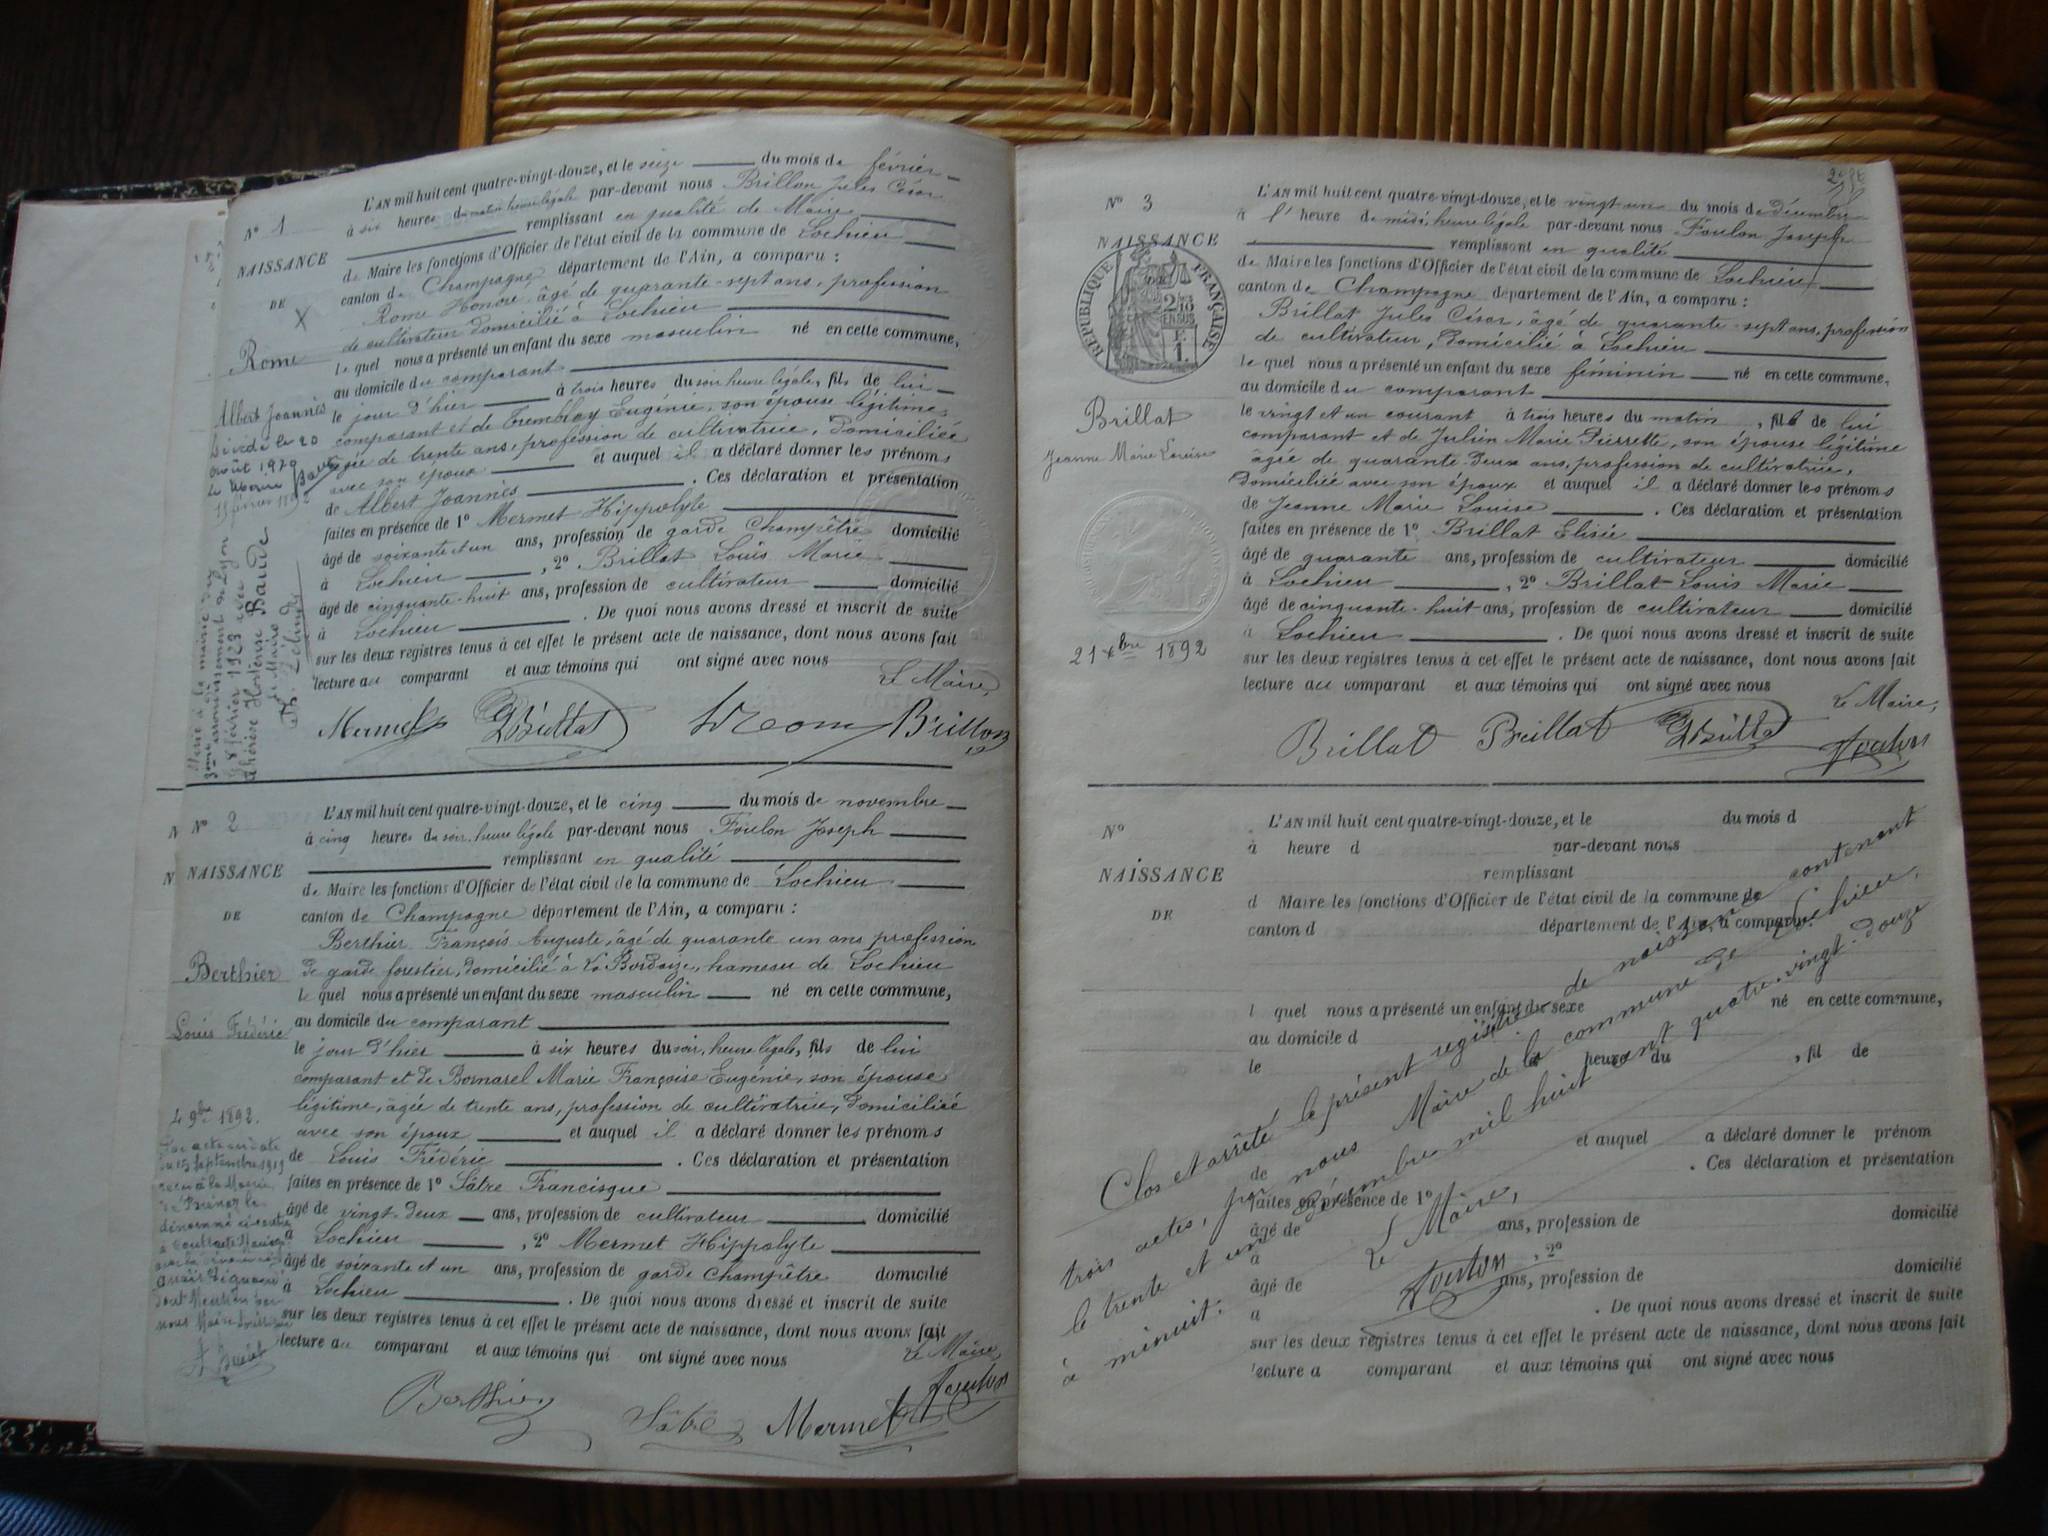 N° 1
NAISSANCE
DE
X
Rome
Albert Joannès
Décédé le 20
août 1979
le Maire
L'AN mil huit cent quatre-vingt-douze, et le seize du mois de février
à six heures du matin heure légale par-devant nous Brillon Jules César
remplissant en qualité de Maire
de Maire les fonctions d'Officier de l'état civil de la commune de Lochieu
canton de Champagne département de l'Ain, a comparu :
Rome Honoré âgé de quarante-sept ans, profession
de cultivateur domicilié à Lochieu
lequel nous a présenté un enfant du sexe masculin né en cette commune,
au domicile du comparant
le jour d'hier à trois heures du soir heure légale, fils de lui
comparant et de Tremblay Eugénie, son épouse légitime,
âgée de trente ans, profession de cultivatrice, domiciliée
avec son époux et auquel il a déclaré donner les prénoms
de Albert Joannès . Ces déclaration et présentation
faites en présence de 1° Mermet Hippolyte
âgé de soixante et un ans, profession de garde Champêtre domicilié
à Lochieu , 2° Brillat Louis Marie
âgé de cinquante-huit ans, profession de cultivateur domicilié
à Lochieu . De quoi nous avons dressé et inscrit de suite
sur les deux registres tenus à cet effet le présent acte de naissance, dont nous avons fait
lecture au comparant et aux témoins qui ont signé avec nous
Le Maire,
Mermet Brillat Brillon
Marié à la mairie du
3ème arrondissement de Lyon
le 8 février 1923 avec
Thérèse Hortense Baude
Le Maire
N° 2
NAISSANCE
DE
Berthier
Louis Frédéric
4 9bre 1892.
Par acte en date
du 15 Septembre 1919
L'AN mil huit cent quatre-vingt-douze, et le cinq du mois de novembre
à cinq heures du soir, heure légale par-devant nous Foulon Joseph
remplissant en qualité
de Maire les fonctions d'Officier de l'état civil de la commune de Lochieu
canton de Champagne département de l'Ain, a comparu :
Berthier François Auguste, âgé de quarante un ans profession
de garde forestier, domicilié à La Bordaize, hameau de Lochieu
lequel nous a présenté un enfant du sexe masculin né en cette commune,
au domicile du comparant
le jour d'hier à six heures du soir, heure légale, fils de lui
comparant et de Bornarel Marie Françoise Eugénie, son épouse
légitime, âgée de trente ans, profession de cultivatrice, domiciliée
avec son époux et auquel il a déclaré donner les prénoms
de Louis Frédéric . Ces déclaration et présentation
faites en présence de 1° Sâtre Francisque
âgé de vingt-deux ans, profession de cultivateur domicilié
à Lochieu , 2° Mermet Hippolyte
âgé de soixante et un ans, profession de garde Champêtre domicilié
à Lochieu . De quoi nous avons dressé et inscrit de suite
sur les deux registres tenus à cet effet le présent acte de naissance, dont nous avons fait
lecture au comparant et aux témoins qui ont signé avec nous
Le Maire,
Berthier Sâtre Mermet Foulon
N° 3
NAISSANCE
RÉPUBLIQUE FRANÇAISE
2/10
EN SUS
1.
Brillat
Jeanne Marie Louise
21 Xbre 1892
L'AN mil huit cent quatre-vingt-douze, et le vingt-un du mois de décembre
à l' heure de midi, heure légale par-devant nous Foulon Joseph
remplissant en qualité
de Maire les fonctions d'Officier de l'état civil de la commune de Lochieu
canton de Champagne département de l'Ain, a comparu :
Brillat Jules César, âgé de quarante-sept ans, profession
de cultivateur, domicilié à Lochieu
lequel nous a présenté un enfant du sexe féminin né en cette commune,
au domicile du comparant
le vingt et un courant à trois heures du matin , fille de lui
comparant et de Julien Marie Pierrette, son épouse légitime
âgée de quarante-deux ans, profession de cultivatrice,
domiciliée avec son époux et auquel il a déclaré donner les prénoms
de Jeanne Marie Louise . Ces déclaration et présentation
faites en présence de 1° Brillat Elisée
âgé de quarante ans, profession de cultivateur domicilié
à Lochieu , 2° Brillat Louis Marie
âgé de cinquante-huit ans, profession de cultivateur domicilié
à Lochieu . De quoi nous avons dressé et inscrit de suite
sur les deux registres tenus à cet effet le présent acte de naissance, dont nous avons fait
lecture au comparant et aux témoins qui ont signé avec nous
Le Maire,
Brillat Brillat Brillat Foulon
N°
NAISSANCE
DE
L'AN mil huit cent quatre-vingt-douze, et le du mois d
à heure d par-devant nous
remplissant
d Maire les fonctions d'Officier de l'état civil de la commune de
canton d département de l'Ain, a comparu
l quel nous a présenté un enfant du sexe né en cette commune,
au domicile d
le à heure du , fil de
et auquel a déclaré donner le prénom
de . Ces déclaration et présentation
faites en présence de 1°
âgé de ans, profession de domicilié
à , 2°
âgé de ans, profession de domicilié
à . De quoi nous avons dressé et inscrit de suite
sur les deux registres tenus à cet effet le présent acte de naissance, dont nous avons fait
lecture a comparant et aux témoins qui ont signé avec nous
Clos et arrêté le présent registre de naissance contenant
trois actes, par nous Maire de la commune de Lochieu,
le trente et un décembre mil huit cent quatre-vingt-douze
à minuit.
Le Maire,
Foulon